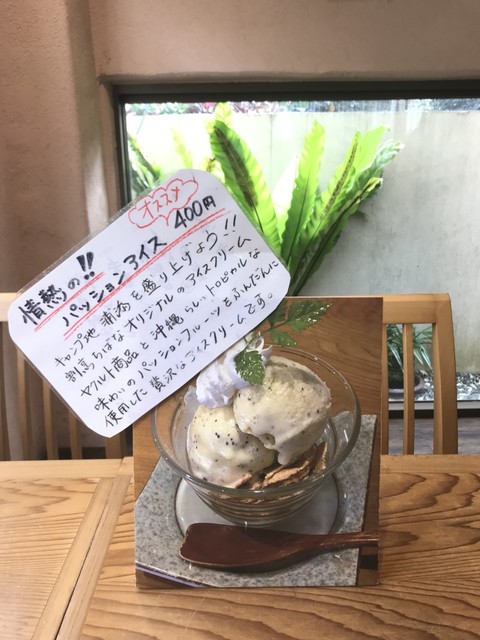 オススメ
情熱の!!
パッションアイス 400円
キャンプ地 浦添を盛り上げよう!!
割烹ちばなオリジナルのアイスクリーム
ヤクルト商品と沖縄らしいトロピカルな
味わいのパッションフルーツをふんだんに
使用した贅沢なアイスクリームです。